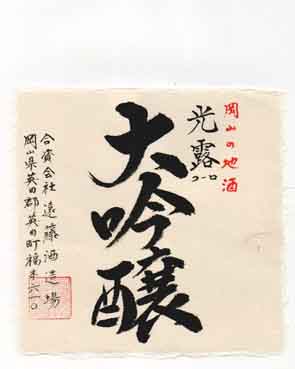 岡山の地酒
光露
コーロ
大吟醸
合資会社 遠藤酒造場
岡山県英田郡英田町福本六一〇